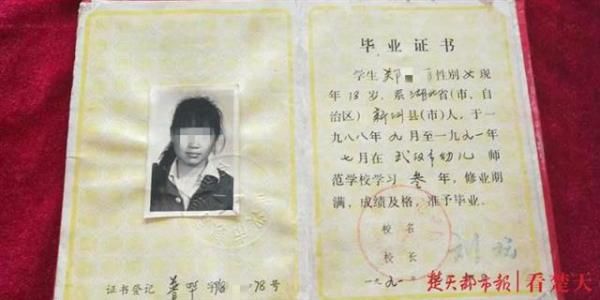 毕业证书
学生郑 性别女现
年18岁，系湖北省(市、自
治区)新洲县(市)人，于
一九八八年九月至一九九一年
七月在武汉市幼儿师
范学校学习叁年，修业期
满，成绩及格，准予毕业。
校名
校长
一九九一
证书登记 78号
楚天都市报 看楚天